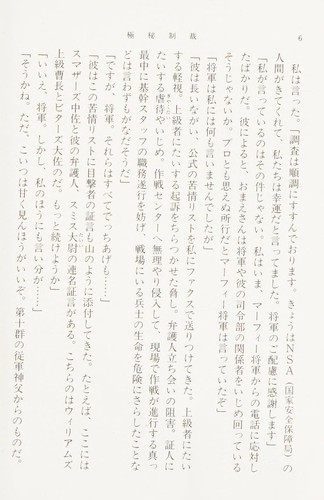 極秘制裁
6
私は言った。「調査は順調にすすんでおります。きょうはNSA（国家安全保障局）の
人間がきてくれて、私たちは幸運だと言ってました。将軍のご配慮に感謝します」
「私が言っているのはその件じゃない。私はいま、マーフィー将軍からの電話に応対し
たばかりだ。彼によると、おまえさんは将軍や彼の司令部の関係者をいじめ回っている
そうじゃないか。プロとも思えぬ所行だとマーフィー将軍は言っていたぞ」
「将軍は私には何も言いませんでしたが」
「彼は長いながい、公式の苦情リストを私にファクスで送りつけてきた。上級者にたい
する軽視。上級者にたいする起訴をちらつかせた脅し。弁護人立ち会いの阻害。証人に
たいする虐待やいじめ。作戦センターへ無理やり侵入して、現場で作戦が進行する真っ
最中に基幹スタッフの職務遂行を妨げ、戦場にいる兵士の生命を危険にさらしたことな
どは言わずもがなだそうだ」
「ですが、将軍、それらはすべてでっちあげも……」
「彼はこの苦情リストに目撃者の証言も山のように添付してきた。たとえば、ここには
スマザーズ中佐と彼の弁護人、スミス大尉の連名証言がある。こちらのはウィリアムズ
上級曹長とピーターズ大佐のだ。もっと続けようか」
「いいえ、将軍。しかし、私のほうにも言い分が……」
「そうかね。ただ、こいつは甘く見んほうがいいぞ。第十群の従軍神父からのものだ。